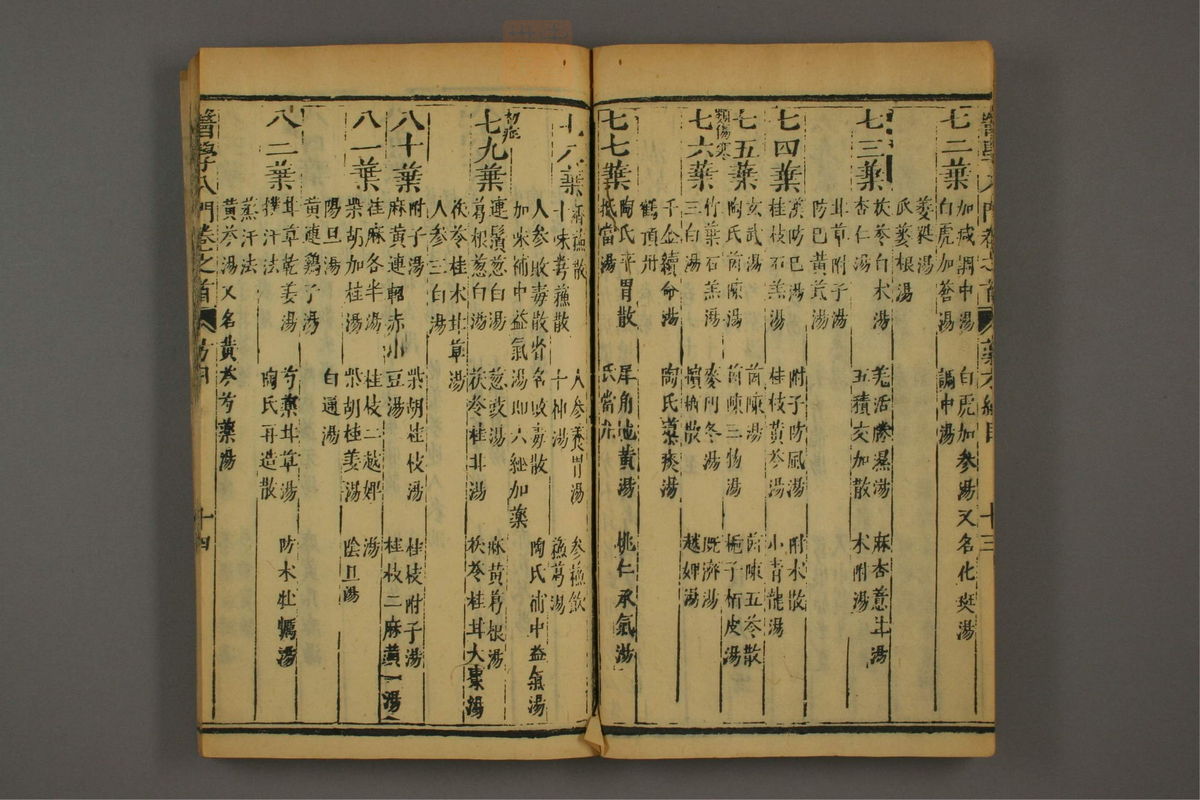 七二葉
加減調中湯　白虎加參湯又名化斑湯
白虎加蒼湯　調中湯
萎蕤湯
氏蔞根湯
七三葉
茯苓白朮湯　羌活勝濕湯　麻杏薏苡湯
杏仁湯　五積交加散　朮附湯
甘草附子湯
防已黃芪湯
七四葉
漢防已湯　附子防風湯　附朮散
桂枝石羔湯　桂枝黃芩湯　小青龍湯
七五葉
玄武湯　茵陳湯　茵陳五苓散
陶氏茵陳湯　茵陳三物湯　梔子栢皮湯
類傷寒
七六葉
竹葉石羔湯　麥門冬湯　既濟湯
三白湯　燒裩散　越婢湯
千金續命湯　陶氏導痰湯
鶴頂丹
七七葉
陶氏平胃散　犀角地黃湯　桃仁承氣湯
抵當湯　氏當丸
七八葉
麻蘇散　人參養胃湯　參蘇飲
十味芎蘇散　十神湯　蘇葛湯
人參敗毒散省名敗毒散　陶氏補中益氣湯
加味補中益氣湯即六經加藥
初症
七九葉
連鬚葱白湯　葱豉湯　麻黃葛根湯
葛根葱白湯　茯苓桂甘湯　茯苓桂甘大棗湯
茯苓桂朮甘草湯
人參三白湯
八十葉
附子湯　柴胡桂枝湯　桂枝附子湯
麻黃連軺赤小豆湯　桂枝二麻黃一湯
八一葉
桂麻各半湯　桂枝二越婢湯
柴胡加桂湯　柴胡桂姜湯　陰旦湯
陽旦湯　白通湯
黃連鷄子湯
八二葉
甘草乾姜湯　芍藥甘草湯　防朮牡蠣湯
撲汗法　陶氏再造散
蒸汗法
黃芩湯又名黃芩芍藥湯
醫學入門卷之首　十四